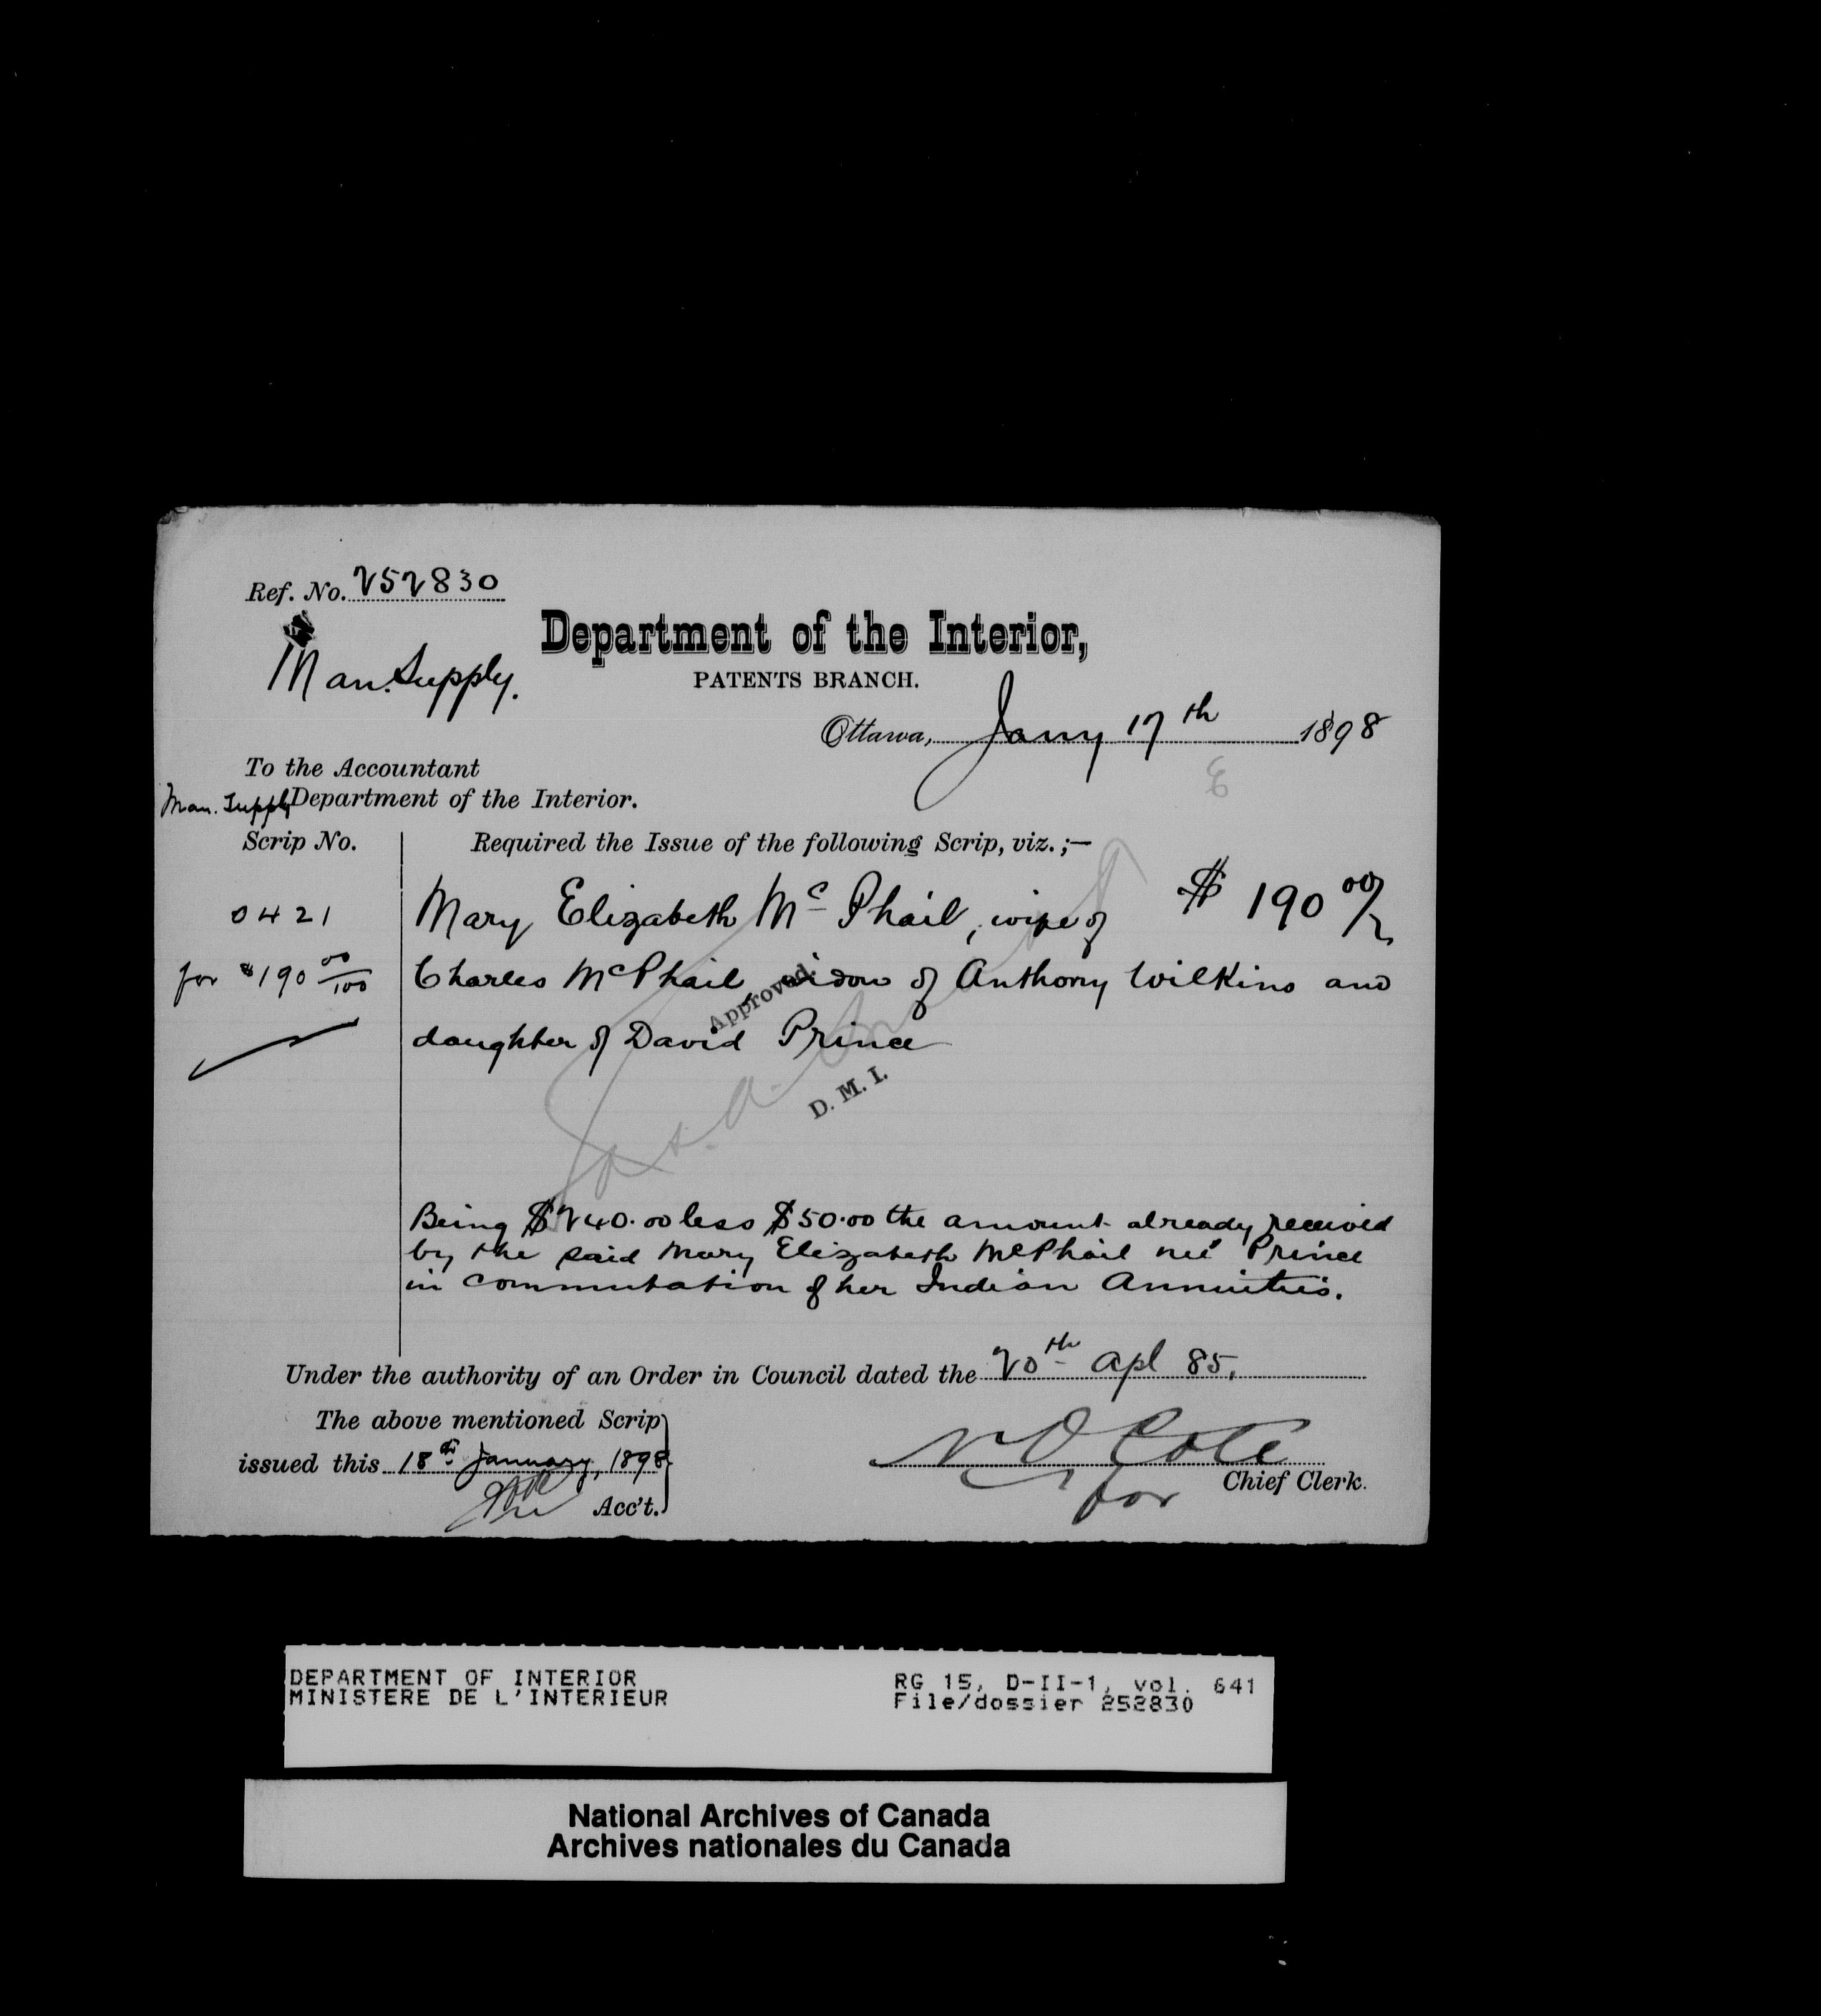 Ref. No. 252830
Man. Supply.
Department of the Interior,
PATENTS BRANCH.
Ottawa, Jany 17th 1898
To the Accountant
Man. Supply Department of the Interior.
Scrip No.
Required the Issue of the following Scrip, viz.;—
0421
Mary Elizabeth McPhail, wife of $190 00/
for $190 00/100
Charles McPhail, widow of Anthony Wilkins and
Approved.
daughter of David Prince
D. M. I.
Being $240.00 less $50.00 the amount already received
by the said Mary Elizabeth McPhail neé Prince
in commutation of her Indian Annuities.
Under the authority of an Order in Council dated the 20th Apl 85.
The above mentioned Scrip
issued this 18th January, 1898
Acc't.
N O Coté
for Chief Clerk.
DEPARTMENT OF INTERIOR
MINISTERE DE L'INTERIEUR
RG 15, D-II-1, vol. 641
File/dossier 252830
National Archives of Canada
Archives nationales du Canada